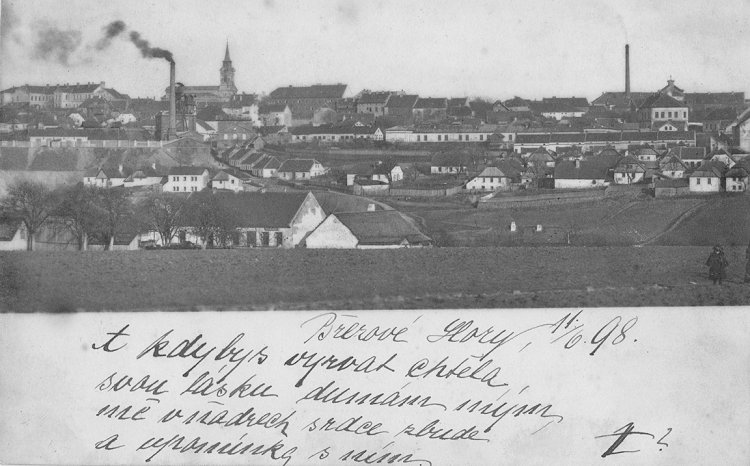 Březové Hory, 11/6. 98.
A kdybys vyrvat chtěla
svou lásku dumám mým,
mě v ňadrech srdce zbude
a upomínka s ním
?